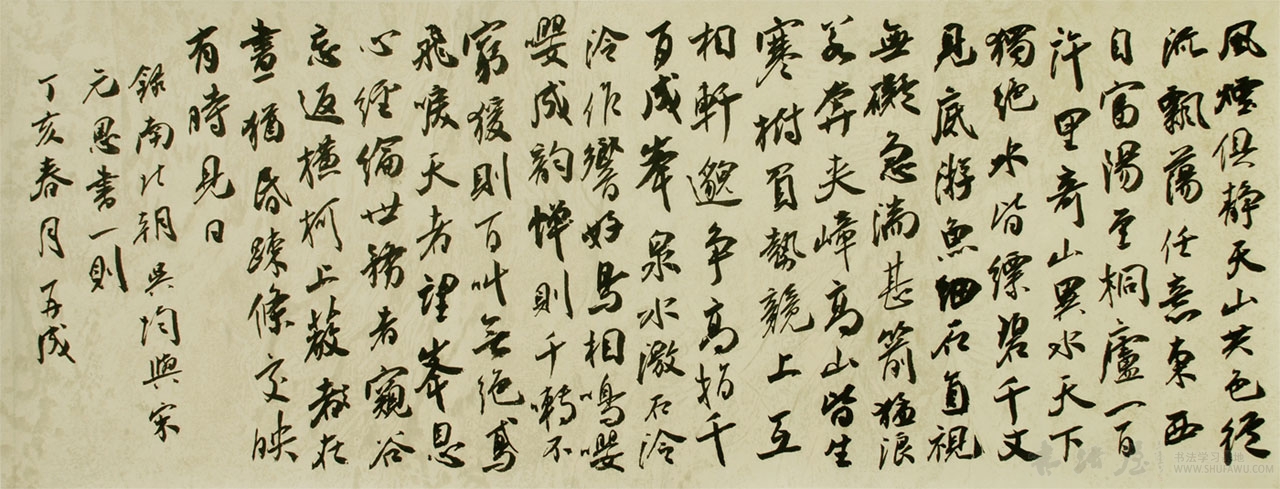 風煙俱靜天山共色從
流飄蕩任意東西
自富陽至桐廬一百
許里奇山異水天下
獨絕水皆縹碧千丈
見底游魚細石直視
無礙急湍甚箭猛浪
若奔夾嶂高山皆生
寒樹負勢競上互
相軒邈爭高指千
百成峯泉水激石泠
泠作響好鳥相鳴嚶
嚶成韵蟬則千囀不
窮猨則百叫無絕鳶
飛唳天者望峯息
心經綸世務者窺谷
忘返橫柯上蔽在
晝猶昏疎條交映
有時見日
錄南北朝吳均與宋
元恩書一則
丁亥春月成
书法屋
书法学习基地
WWW.SHUFAWU.COM